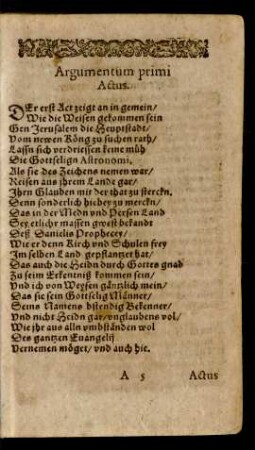 Argumentum primi
Actus.
DEr erst Act zeigt an in gemein/
Wie die Weisen gekommen sein
Gen Jerusalem die Heuptstadt/
Vom newen Köng zu suchen rath/
Lassn sich verdriessen keine müh
Die Gottselign Astronomi,
Als sie des Zeichens nemen war/
Reisen aus jhrem Lande gar/
Ihrn Glauben mit der that zu sterckn,
Denn sonderlich hiebey zu merckn/
Das in der Medn vnd Persen Land
Sey etlicher massen gwest bekandt
Deß Danielis Prophecey/
Wie er denn Kirch vnd Schulen frey
Im selben Land gepflantzet hat/
Das auch die Heidn durch Gottes gnad
Zu seim Erkentniß kommen sein/
Vnd ich von Weysen gäntzlich mein/
Das sie sein Gottselig Männer/
Seins Namens bstendig Bekenner/
Vnd nicht Heidn gar/vnglaubens vol/
Wie jhr aus alln vmbständen wol
Des gantzen Euangelij
Vernemen möget/ vnd auch hie.
A 5 Actus